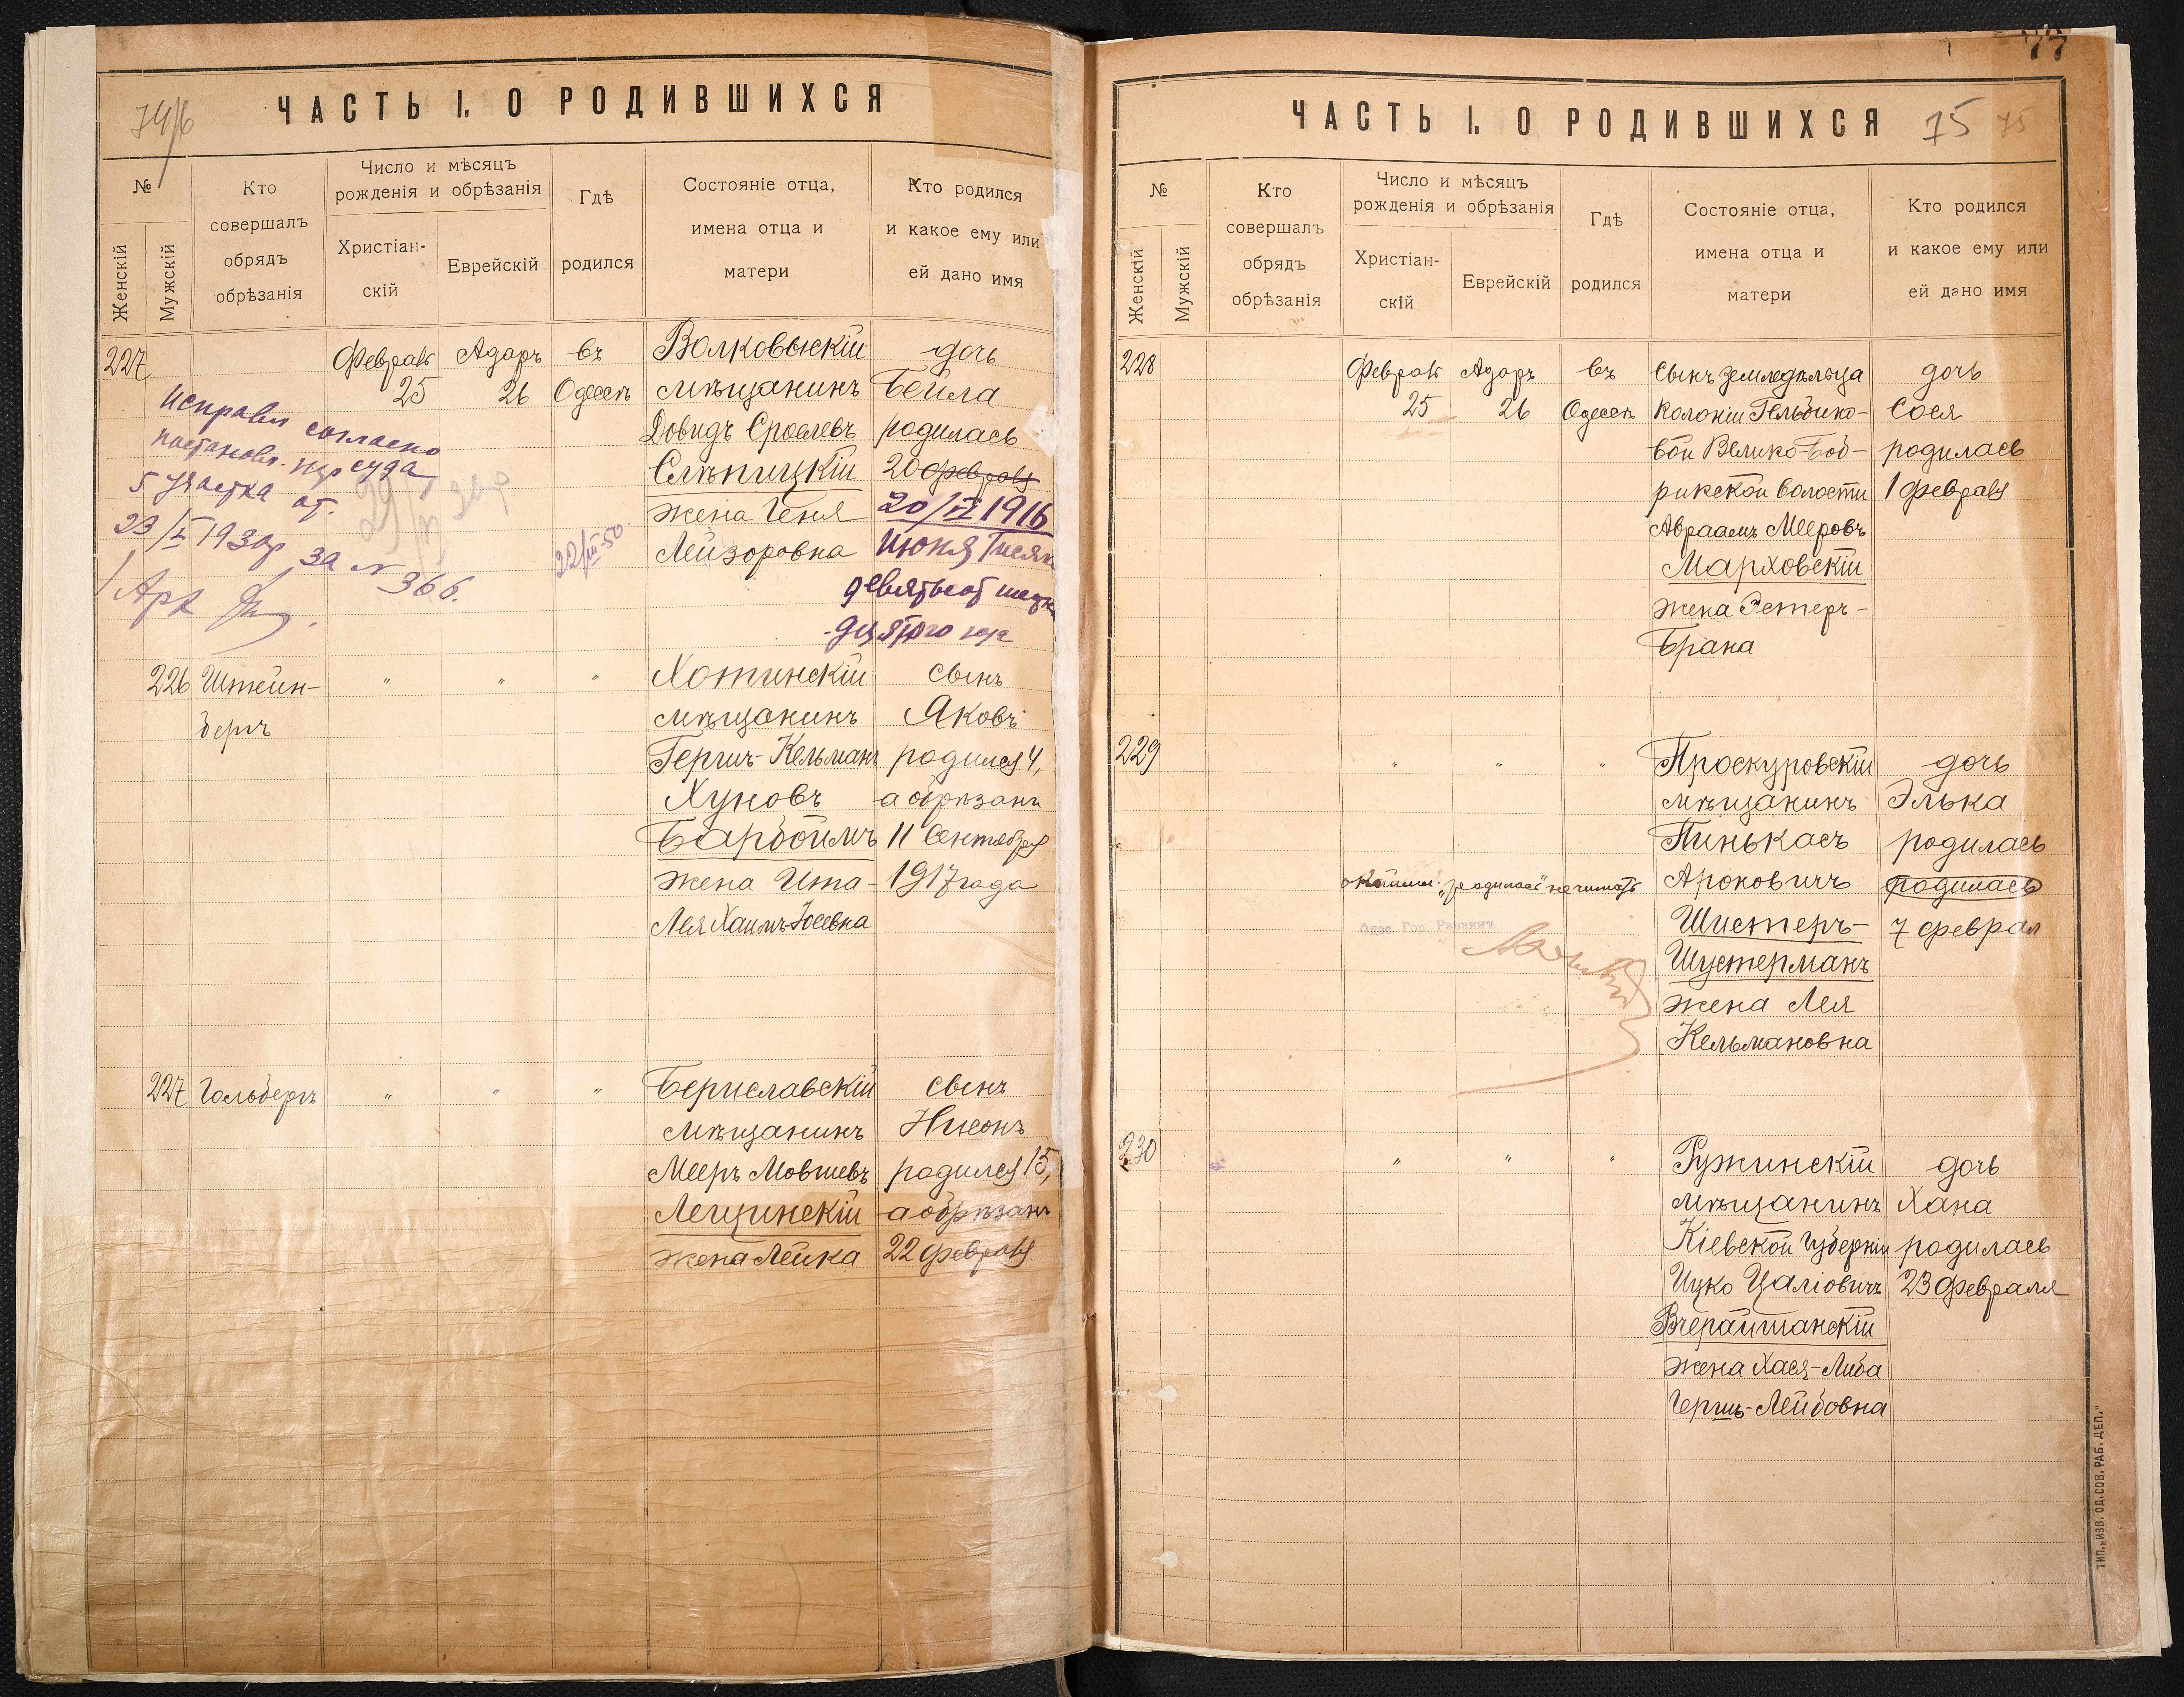 74/б
ЧАСТЬ I. О РОДИВШИХСЯ
№
Женскій
Мужскій
Кто
совершалъ
обрядъ
обрѣзанія
Число и мѣсяцъ
рожденія и обрѣзанія
Христіан-
скій
Еврейскій
Гдѣ
родился
Состояніе отца,
имена отца и
матери
Кто родился
и какое ему или
ей дано имя
227
Феврал
25
Адаръ
26
въ
Одессѣ
Волковыскій
мѣщанинъ
Довидъ Сролевъ
Слѣпицкій
жена Геня
Лейзоровна
дочь
Бейла
родилась
20 февраля
20/VI 1916
Июня Тысяч
девятьсот шест
надцятого года
Исправл согласно
постановл. нар суда
5 участка от
23/I 193 г за № 366.
22/III-50
226
Штейн-
бергъ
"
"
"
Хотинскій
мѣщанинъ
Гершъ-Кельманъ
Хуновъ
Барбоймъ
жена Ита-
Лея Хаимъ-Іосевна
сынъ
Яковъ
родился 4,
а обрѣзанъ
11 Сентября
1917 года
227
Гольбергъ
"
"
"
Бериславскій
мѣщанинъ
Мееръ Мовшевъ
Лещинскій
жена Лейка
сынъ
Нисонъ
родился 15,
а обрѣзанъ
22 февраля
77
ЧАСТЬ I. О РОДИВШИХСЯ
75 75
№
Женскій
Мужскій
Кто
совершалъ
обрядъ
обрѣзанія
Число и мѣсяцъ
рожденія и обрѣзанія
Христіан-
скій
Еврейскій
Гдѣ
родился
Состояніе отца,
имена отца и
матери
Кто родился
и какое ему или
ей дано имя
228
Феврал
25
Адаръ
26
въ
Одессѣ
Сынъ земледѣльца
Колоніи Гельбино-
вой Велико-Боб-
рикской волости
Авраамъ Мееровъ
Марховскій
жена Эстеръ-
Брана
дочь
Сося
родилась
1 февраля
229
"
"
"
Проскуровскій
мѣщанинъ
Пинькасъ
Ароновичъ
Шистеръ-
Шустерманъ
жена Лея
Кельмановна
дочь
Элька
родилась
родилась
7 феврал
окаймл. "родилась" не читать
Одес. Гор. Раввинъ
230
"
"
"
Ружинскій
мѣщанинъ
Кіевской Губерніи
Ицко Цаліовичъ
Вчерайшанскій
жена Хася-Либа
Гершъ-Лейбовна
дочь
Хана
родилась
23 Февраля
ТИП. „ИЗВ. ОД. СОВ. РАБ. ДЕП."